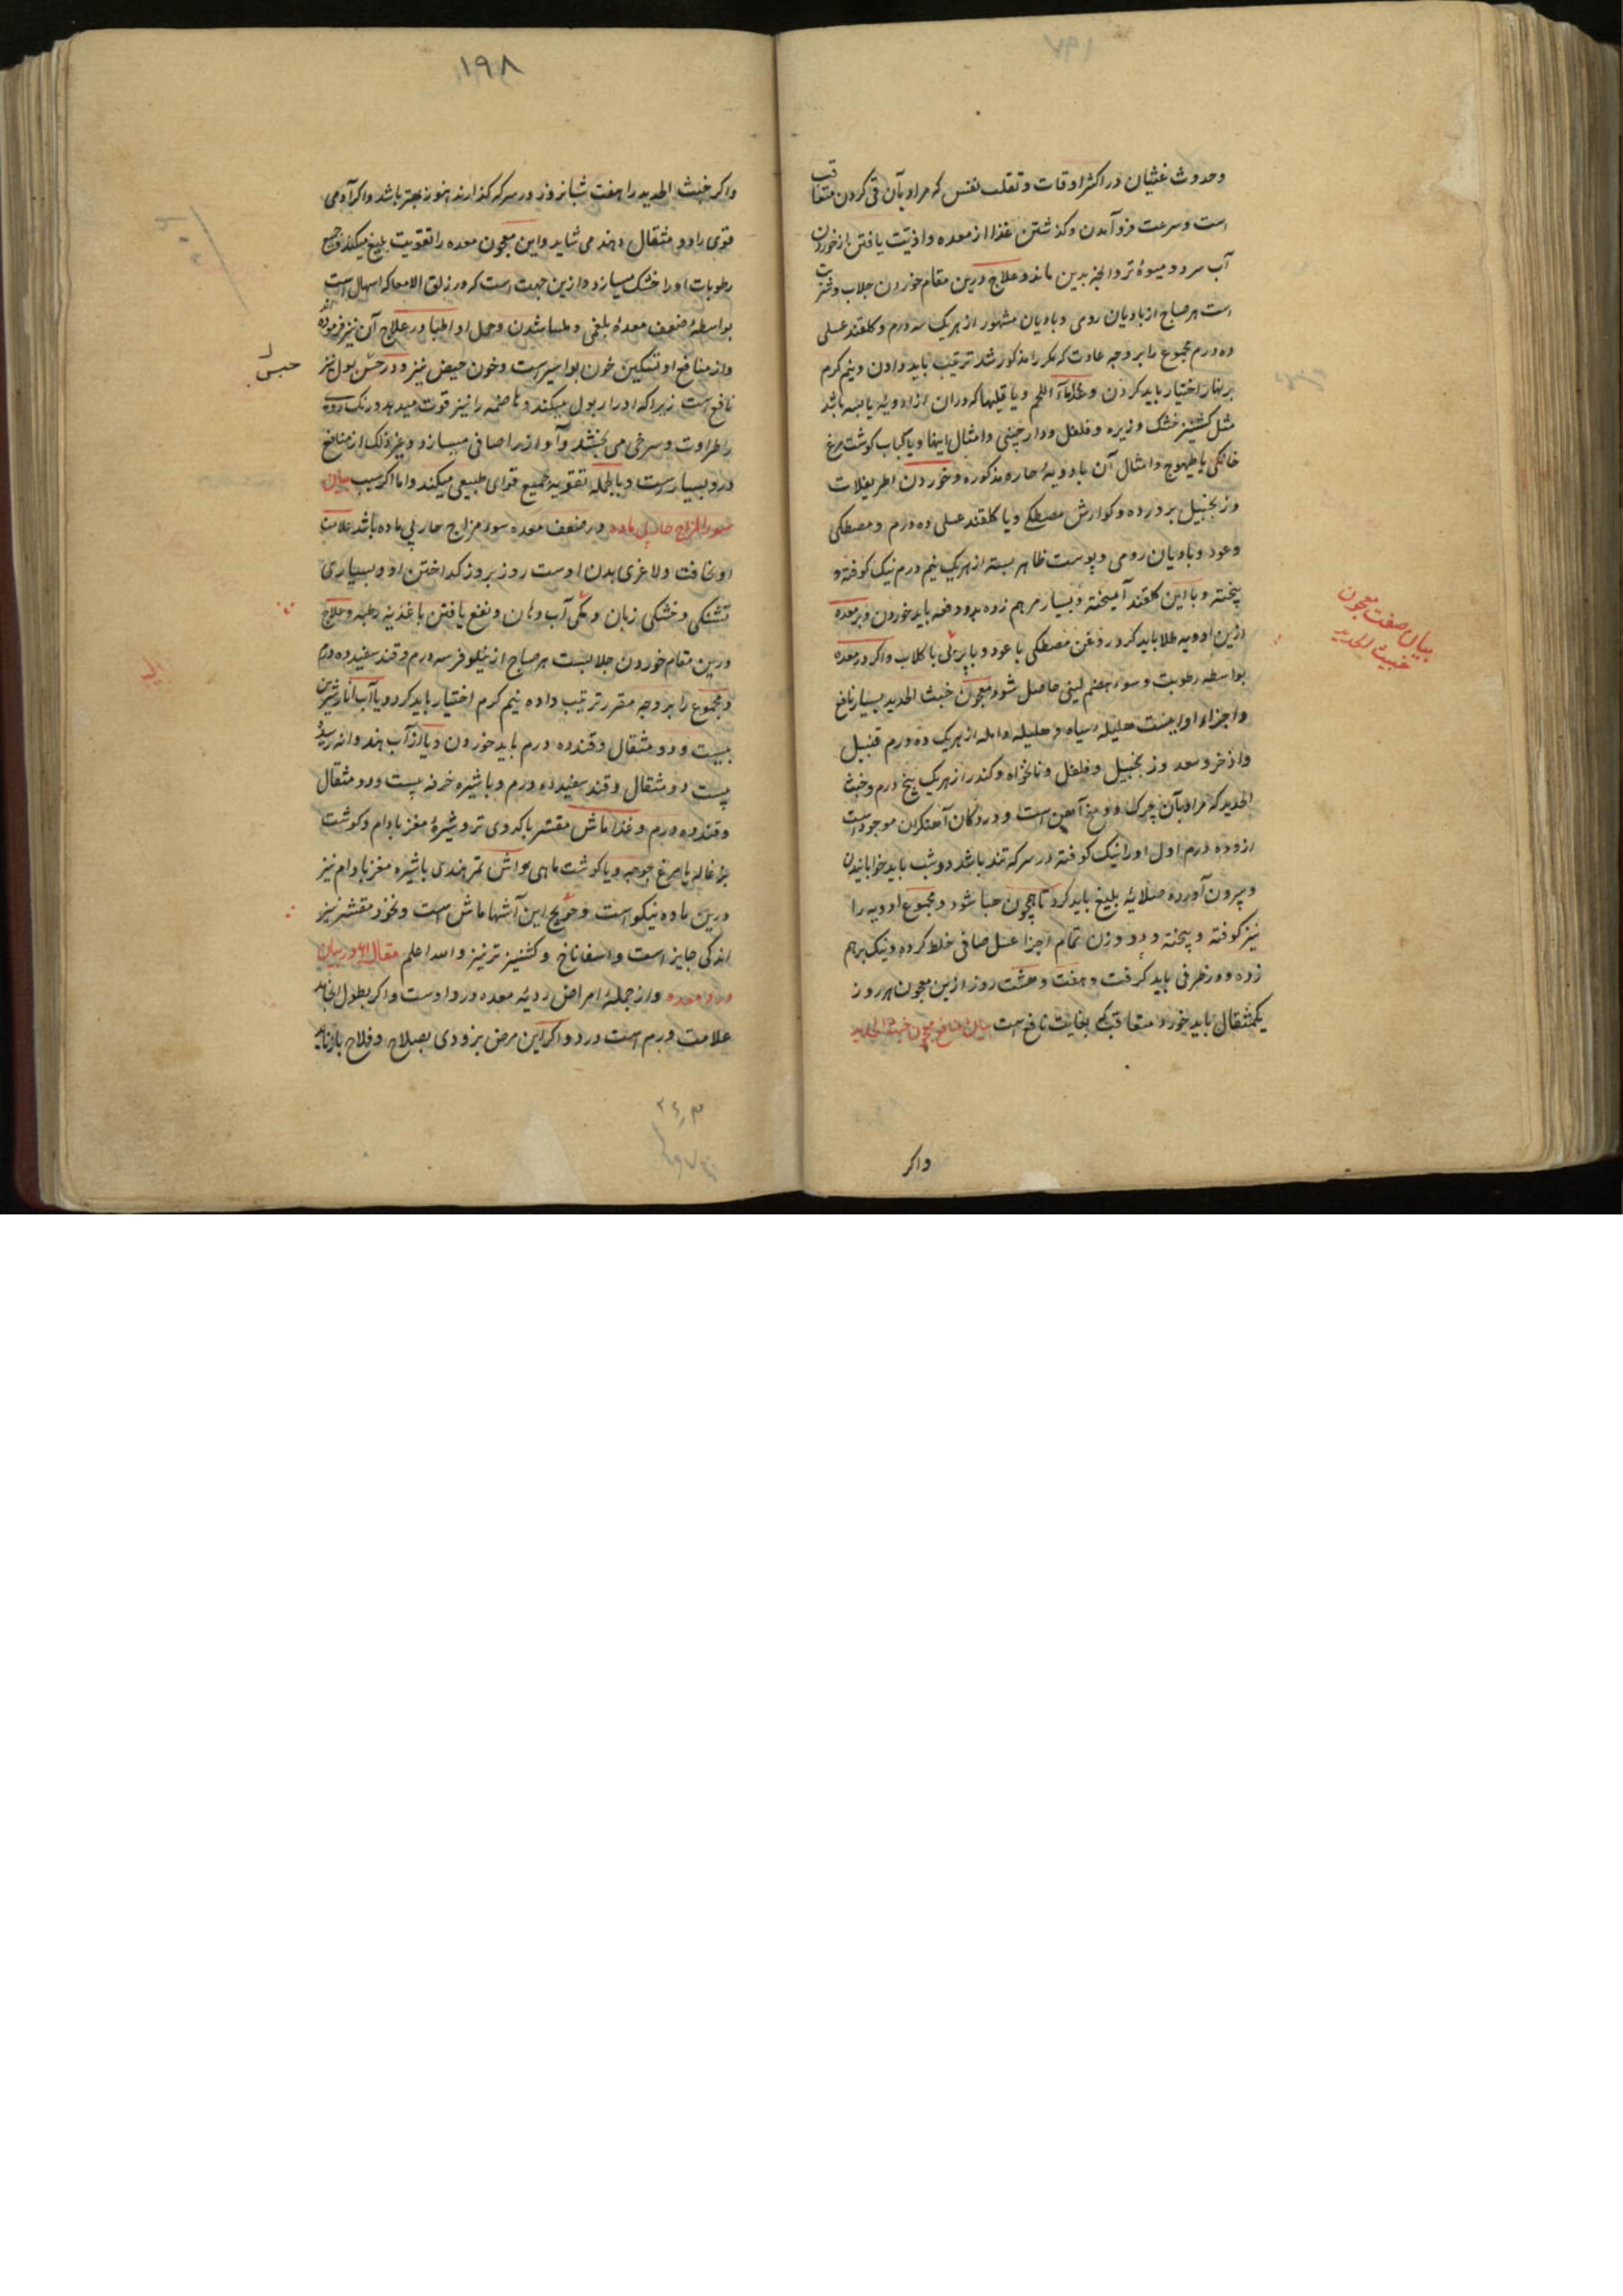 ۱۹۷
وحدوث غثیان در اکثر اوقات وتقلب نفس که مراد بآن قی کردن متعاقب
است وسرعت فرو آمدن وکذشتن غذا از معده واذیت یافتن از خوردن
آب سرد ومیوهٔ تر وانچه بدین ماند وعلاج درین مقام خوردن جلاب
است هر صباح از بادیان رومی وبادیان مشهور از هر یک سه درم وکلقند عسلی
ده درم مجموع را بر وجه عادت که مکرر مذکور شد ترتیب باید دادن ونیم کرم
بر نهار اختیار باید کردن وغذا ماء اللحم ویا قلیها که در آن از ادویهٔ یابسه باشد
مثل کشنیز خشک وزیره وفلفل ودارچینی وامثال اینها ویا کباب کوشت مرغ
خانکی یا طیهوج وامثال آن با ادویهٔ حاره مذکوره وخوردن اطریفلات
وزنجبیل پرورده وکوارش مصطکی ویا کلقند عسلی ده درم ومصطکی
وعود وبادیان رومی وپوست ظاهر پسته از هر یک نیم درم نیک کوفته و
پیخته وبا این کلقند آمیخته وبسیار بر هم زده بدو دفعه باید خوردن وبر معده
ازین ادویه طلا باید کرد روغن مصطکی با عود وبا بهی با کلاب واکر در معده
بواسطه رطوبت وسوء هضم لینی حاصل شود معجون خبث الحدید بسیار نافع
واجزاء او اینست هلیله سیاه وهلیله وامله از هر یک ده درم قنبیل
واذخر وسعد وزنجبیل وفلفل ونانخواه وکندر از هر یک پنج درم وخبث
الحدید که مراد بآن چرک وریم آهن است ودر دکان آهنکران موجود است
ازو ده درم اول او را نیک کوفته در سرکه تند باشد دو شب باید خوابانیدن
وبیرون آورده صلایهٔ بلیغ باید کرد تا همچون هبا شود ومجموع ادویه را
نیز کوفته وپیخته ودو وزن تمام اجزا عسل صافی خلط کرده ونیک بر هم
زده ودر ظرفی باید کرفت وهفت وهشت روز ازین معجون هر روز
یکمثقال باید خورد متعاقب که بغایت نافع است بیان منافع معجون خبث الحدید
بیان صفت معجون
خبیث الحدید
واکر
۱۹۸
واکر خبث الحدید را هفت شبانروز در سرکه کذارند هنوز بهتر باشد واکر آدمی
قوی را دو مثقال دهند می شاید واین معجون معده را تقویت بلیغ میکند وجمیع
رطوبات او را خشک میسازد وازین جهت است که در زلق الامعا که اسهال است
بواسطهٔ ضعف معدهٔ بلغمی وملسا شدن وحمل او اطبا در علاج آن نیز فرموده اند
واز منافع او تسکین خون بواسیر است وخون حیض نیز ودر حبس بول نیز
نافع است زیرا که ادرار بول میکند وهاضمه را نیز قوت میدهد ورنک روی
را طراوت وسرخی می بخشد وآواز را صافی میسازد وغیر ذلک از منافع
درو بسیار است وبالجمله تقویة جمیع قوای طبیعی میکند واما اکر سبب بیان
سوء المزاج حار بی ماده در ضعف معده سوء مزاج حار بی ماده باشد علامت
او نحافت ولاغری بدن اوست روز بروز کداختن او وبسیاری
تشنکی وخشکی زبان وکمی آب دهان ونفع یافتن باغذیه رطبه وعلاج
درین مقام خوردن جلابست هر صباح از نیلوفر سه درم وقند سفید ده درم
ومجموع را بر وجه مقرر ترتیب داده نیم کرم اختیار باید کرد ویا آب انار شیرین
بیست ودو مثقال وقند ده درم باید خوردن ویا از آب هندوانه رسیده
بیست دو مثقال وقند سفید ده درم وبا شیره خرفه بیست ودو مثقال
وقند ده درم وغذا ماش مقشر با کدوی تر وشیرهٔ مغز بادام وکوشت
بزغاله یا مرغ جوجه ویا کوشت ماهی وآش تمر هندی با شیره مغز بادام نیز
درین ماده نیکو است وحوایج این آشها ماش است ونخود مقشر نیز
اندکی جایز است واسفاناخ وکشنیز تر نیز والله اعلم مقاله در بیان
درد معده واز جملهٔ امراض ردیهٔ معده درد اوست واکر بطول انجامد
علامت ورم است درو واکر این مرض بزودی بصلاح وفلاح باز نیاید
حبس